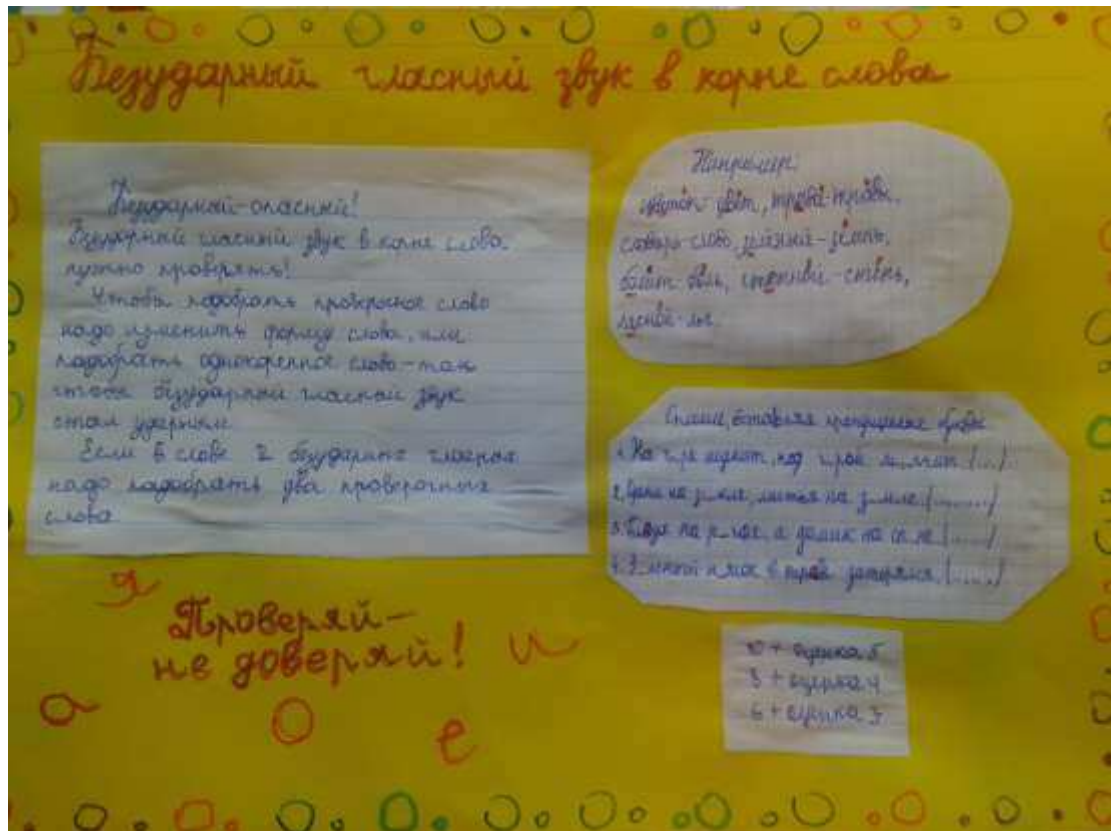 Безударный гласный звук в корне слова
Безударный-опасный!
Безударный гласный звук в корне слова
нужно проверять!
Чтобы подобрать проверочное слово
надо изменить форму слова, или
подобрать однокоренное слово-так
чтобы безударный гласный звук
стал ударным
Если в слове 2 безударные гласные
надо подобрать два проверочных
слова
Например:
цветок-цвет, трава-травы,
словарь-слово, зелёный-зелень,
болит-боль, степной-степь,
лесной-лес.
Спиши, вставляя пропущенные буквы
1. На г_ре шумит, под г_рой м_лчит. (...)
2. на з_мле, на з_мле. (........)
3. Ползун на р_гах, а домик на сп_не. (......)
4. З_лёный в траве затерялся. (......)
Проверяй-
не доверяй!
я
и
а
о
е
10 + оценка 5
8 + оценка 4
6 + оценка 3